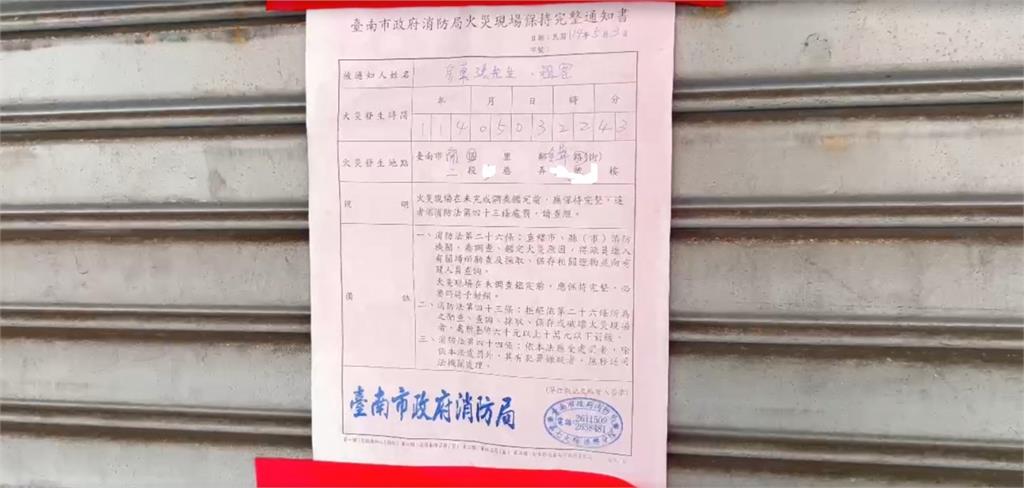 臺南市政府消防局火災現場保持完整通知書
日期:民國114年5月3日
字號:
被通知人姓名
張先生
年 月 日 時 分
火災發生時間 1 1 4 0 5 0 3 2 2 4 3
火災發生地點 臺南市 南 區 里 鄰 路(街)
二 段 巷 弄 號 樓
說 明
火災現場在未完成調查鑑定前,應保持完整,違
者依消防法第四十三條處罰,請查照。
備 註
一、消防法第二十六條:直轄市、縣(市)消防
機關,為調查、鑑定火災原因,得派員進入
有關場所勘查及採取、保存相關證物並向有
關人員查詢。
火災現場在未調查鑑定前,應保持完整,必
要時得予封鎖。
二、消防法第四十三條:拒絕依第二十六條所為
之勘查、查詢、採取、保存或破壞火災現場
者,處新臺幣六千元以上十萬元以下罰鍰。
三、消防法第四十四條:依本法應受處罰者,除
依本法處罰外,其有犯罪嫌疑者,應移送司
法機關處理。
臺南市政府消防局
臺南市政府消防局
電話 2611509
2658481